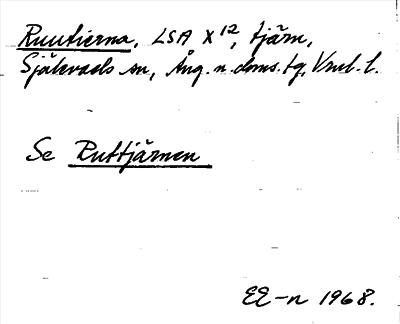 Ruutierna, LSA X 12, tjärn,
Själevads sn, Ång. n. doms. tg, Vnl. l.
Se Ruttjärnen
EE-n 1968.